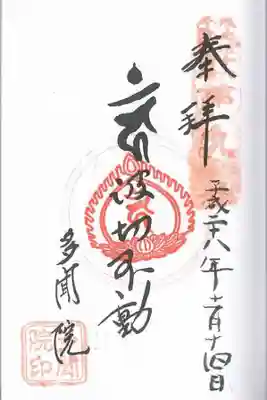 奉拝
平成二十八年十一月十四日
波切不動
多聞院
多聞院印